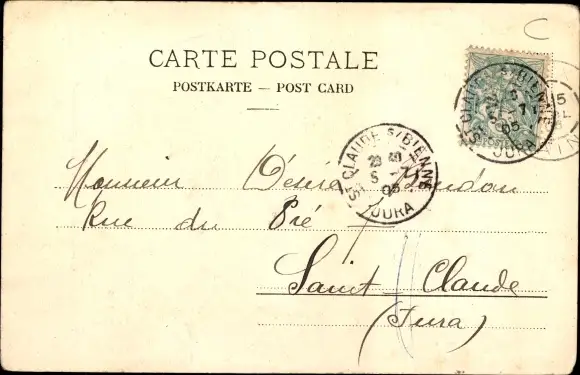 CARTE POSTALE
POSTKARTE — POST CARD
ST CLAUDE S/BIENNE
23 40
5 - 7
05
JURA
ST CLAUDE S/BIENNE
5 - 7
05
JURA
Monsieur Désiré
Rue du Pré
Saint Claude
(Jura)